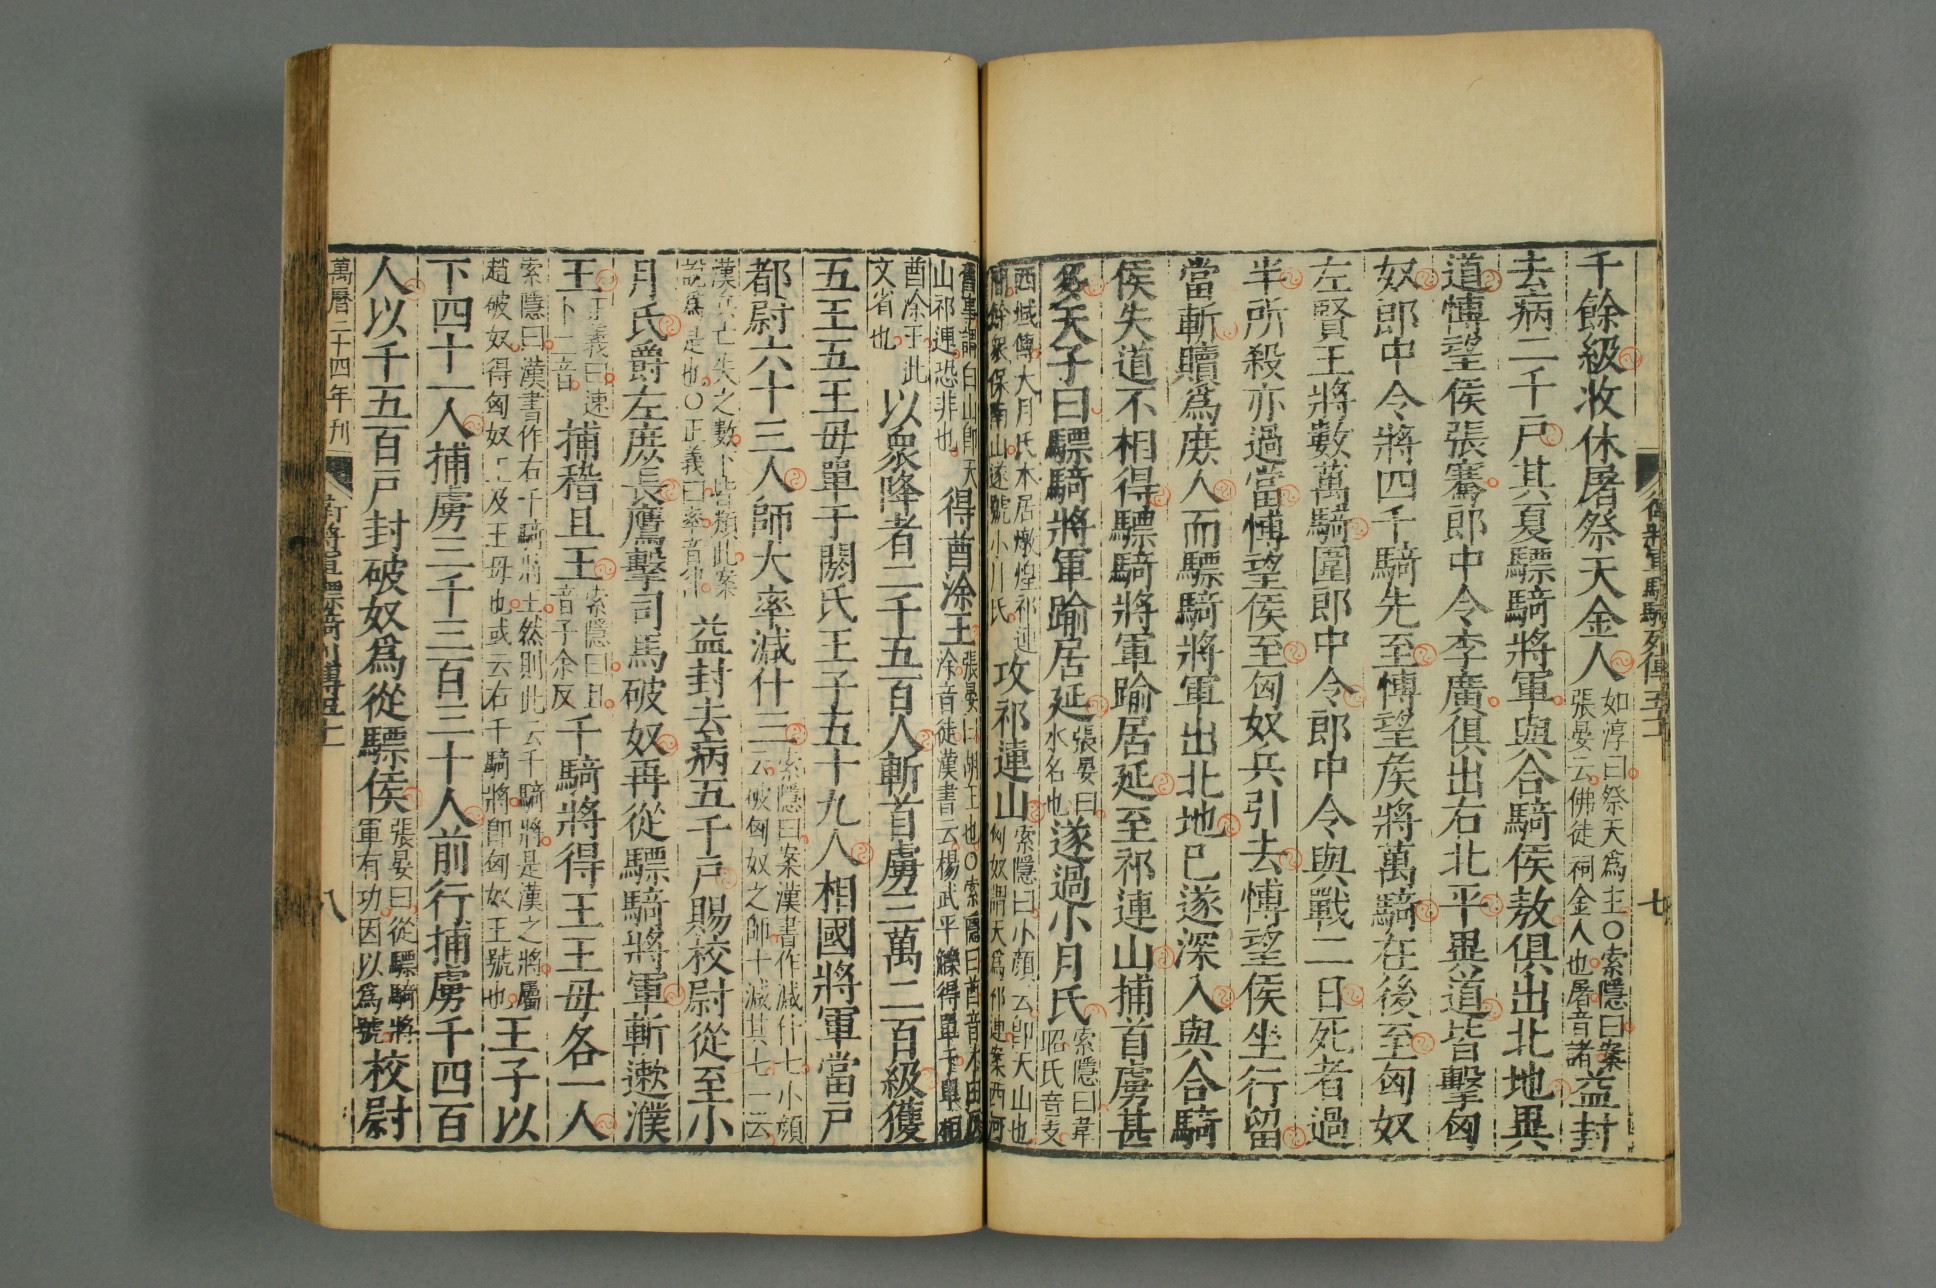 衛將軍驃騎列傳五十一　七
千餘級收休屠祭天金人如淳曰祭天爲主○索隱曰案張晏云佛徒祠金人也屠音諸益封
去病二千戶其夏驃騎將軍與合騎侯敖俱出北地異
道博望侯張騫郎中令李廣俱出右北平異道皆擊匈
奴郎中令將四千騎先至博望侯將萬騎在後至匈奴
左賢王將數萬騎圍郎中令郎中令與戰二日死者過
半所殺亦過當博望侯至匈奴兵引去博望侯坐行留
當斬贖爲庶人而驃騎將軍出北地已遂深入與合騎
侯失道不相得驃騎將軍踰居延至祁連山捕首虜甚
多天子曰驃騎將軍踰居延張晏曰水名也遂過小月氏索隱曰韋昭氏音支
西域傳大月氏本居燉煌祁連間餘衆保南山遂號小月氏攻祁連山索隱曰小顏云卽天山也匈奴謂天爲祁連案西河
舊事謂白山卽天山祁連恐非也得酋涂王張晏曰胡王也○索隱曰酋音才由反涂音徒漢書云楊武平鱳得單于單桓
酋涂王此文省也以衆降者二千五百人斬首虜三萬二百級獲
五王五王母單于閼氏王子五十九人相國將軍當戶
都尉六十三人師大率減什三索隱曰案漢書作減什七小顏云破匈奴之師十減其七一云
漢兵亡失之數下皆類此案說爲是也○正義曰率音律益封去病五千戶賜校尉從至小
月氏爵左庶長鷹擊司馬破奴再從驃騎將軍斬遬濮
王正義曰速卜二音捕稽且王索隱曰且音子余反千騎將得王王母各一人
索隱曰漢書作右千騎將王然則此云千騎將是漢之將屬趙破奴得匈奴王及王母也或云右千騎將卽匈奴王號也王子以
下四十一人捕虜三千三百三十人前行捕虜千四百
人以千五百戶封破奴爲從驃侯張晏曰從驃騎將軍有功因以爲號校尉
萬曆二十四年刊　衛將軍驃騎列傳五十一　八